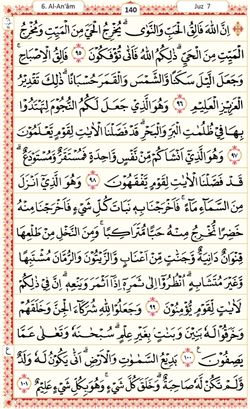 6. Al-An'âm
140
Juz 7
اِنَّ اللّٰهَ فَالِقُ الْحَبِّ وَالنَّوٰىۗ يُخْرِجُ الْحَيَّ مِنَ الْمَيِّتِ وَمُخْرِجُ
الْمَيِّتِ مِنَ الْحَيِّۗ ذٰلِكُمُ اللّٰهُ فَاَنّٰى تُؤْفَكُوْنَ ٩٥ فَالِقُ الْاِصْبَاحِۚ
وَجَعَلَ الَّيْلَ سَكَنًا وَّالشَّمْسَ وَالْقَمَرَ حُسْبَانًاۗ ذٰلِكَ تَقْدِيْرُ
الْعَزِيْزِ الْعَلِيْمِ ٩٦ وَهُوَ الَّذِيْ جَعَلَ لَكُمُ النُّجُوْمَ لِتَهْتَدُوْا
بِهَا فِيْ ظُلُمٰتِ الْبَرِّ وَالْبَحْرِۗ قَدْ فَصَّلْنَا الْاٰيٰتِ لِقَوْمٍ يَّعْلَمُوْنَ
٩٧ وَهُوَ الَّذِيْٓ اَنْشَاَكُمْ مِّنْ نَّفْسٍ وَّاحِدَةٍ فَمُسْتَقَرٌّ وَّمُسْتَوْدَعٌۗ
قَدْ فَصَّلْنَا الْاٰيٰتِ لِقَوْمٍ يَّفْقَهُوْنَ ٩٨ وَهُوَ الَّذِيْٓ اَنْزَلَ
مِنَ السَّمَاۤءِ مَاۤءًۚ فَاَخْرَجْنَا بِهٖ نَبَاتَ كُلِّ شَيْءٍ فَاَخْرَجْنَا مِنْهُ
خَضِرًا نُّخْرِجُ مِنْهُ حَبًّا مُّتَرَاكِبًاۚ وَمِنَ النَّخْلِ مِنْ طَلْعِهَا
قِنْوَانٌ دَانِيَةٌ وَّجَنّٰتٍ مِّنْ اَعْنَابٍ وَّالزَّيْتُوْنَ وَالرُّمَّانَ مُشْتَبِهًا
وَّغَيْرَ مُتَشَابِهٍۗ اُنْظُرُوْٓا اِلٰى ثَمَرِهٖٓ اِذَآ اَثْمَرَ وَيَنْعِهٖۗ اِنَّ فِيْ ذٰلِكُمْ
لَاٰيٰتٍ لِّقَوْمٍ يُّؤْمِنُوْنَ ٩٩ وَجَعَلُوْا لِلّٰهِ شُرَكَاۤءَ الْجِنَّ وَخَلَقَهُمْ
وَخَرَقُوْا لَهٗ بَنِيْنَ وَبَنٰتٍۢ بِغَيْرِ عِلْمٍۗ سُبْحٰنَهٗ وَتَعٰلٰى عَمَّا
يَصِفُوْنَ ١٠٠ بَدِيْعُ السَّمٰوٰتِ وَالْاَرْضِۗ اَنّٰى يَكُوْنُ لَهٗ وَلَدٌ
وَّلَمْ تَكُنْ لَّهٗ صَاحِبَةٌۗ وَخَلَقَ كُلَّ شَيْءٍۚ وَهُوَ بِكُلِّ شَيْءٍ عَلِيْمٌ ١٠١
ع